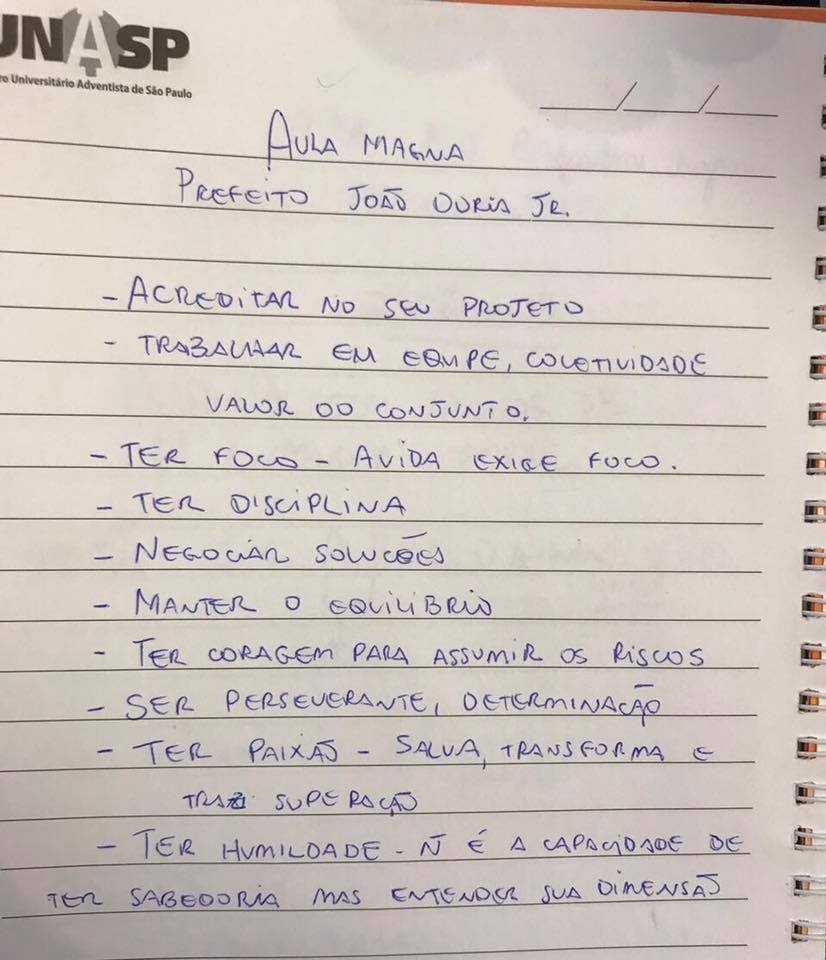 UNASP
ro Universitário Adventista de São Paulo
AULA MAGNA
PREFEITO JOÃO DORIA JR.
- ACREDITAR NO SEU PROJETO
- TRABALHAR EM EQUIPE, COLETIVIDADE
VALOR DO CONJUNTO.
- TER FOCO - A VIDA EXIGE FOCO.
- TER DISCIPLINA
- NEGOCIAR SOLUCÕES
- MANTER O EQUILIBRIO
- TER CORAGEM PARA ASSUMIR OS RISCOS
- SER PERSEVERANTE, DETERMINAÇÃO
- TER PAIXÃO - SALVA, TRANSFORMA E
TRAZ SUPERAÇÃO
- TER HUMILDADE - Ñ É A CAPACIDADE DE
TER SABEDORIA MAS ENTENDER SUA DIMENSÃO